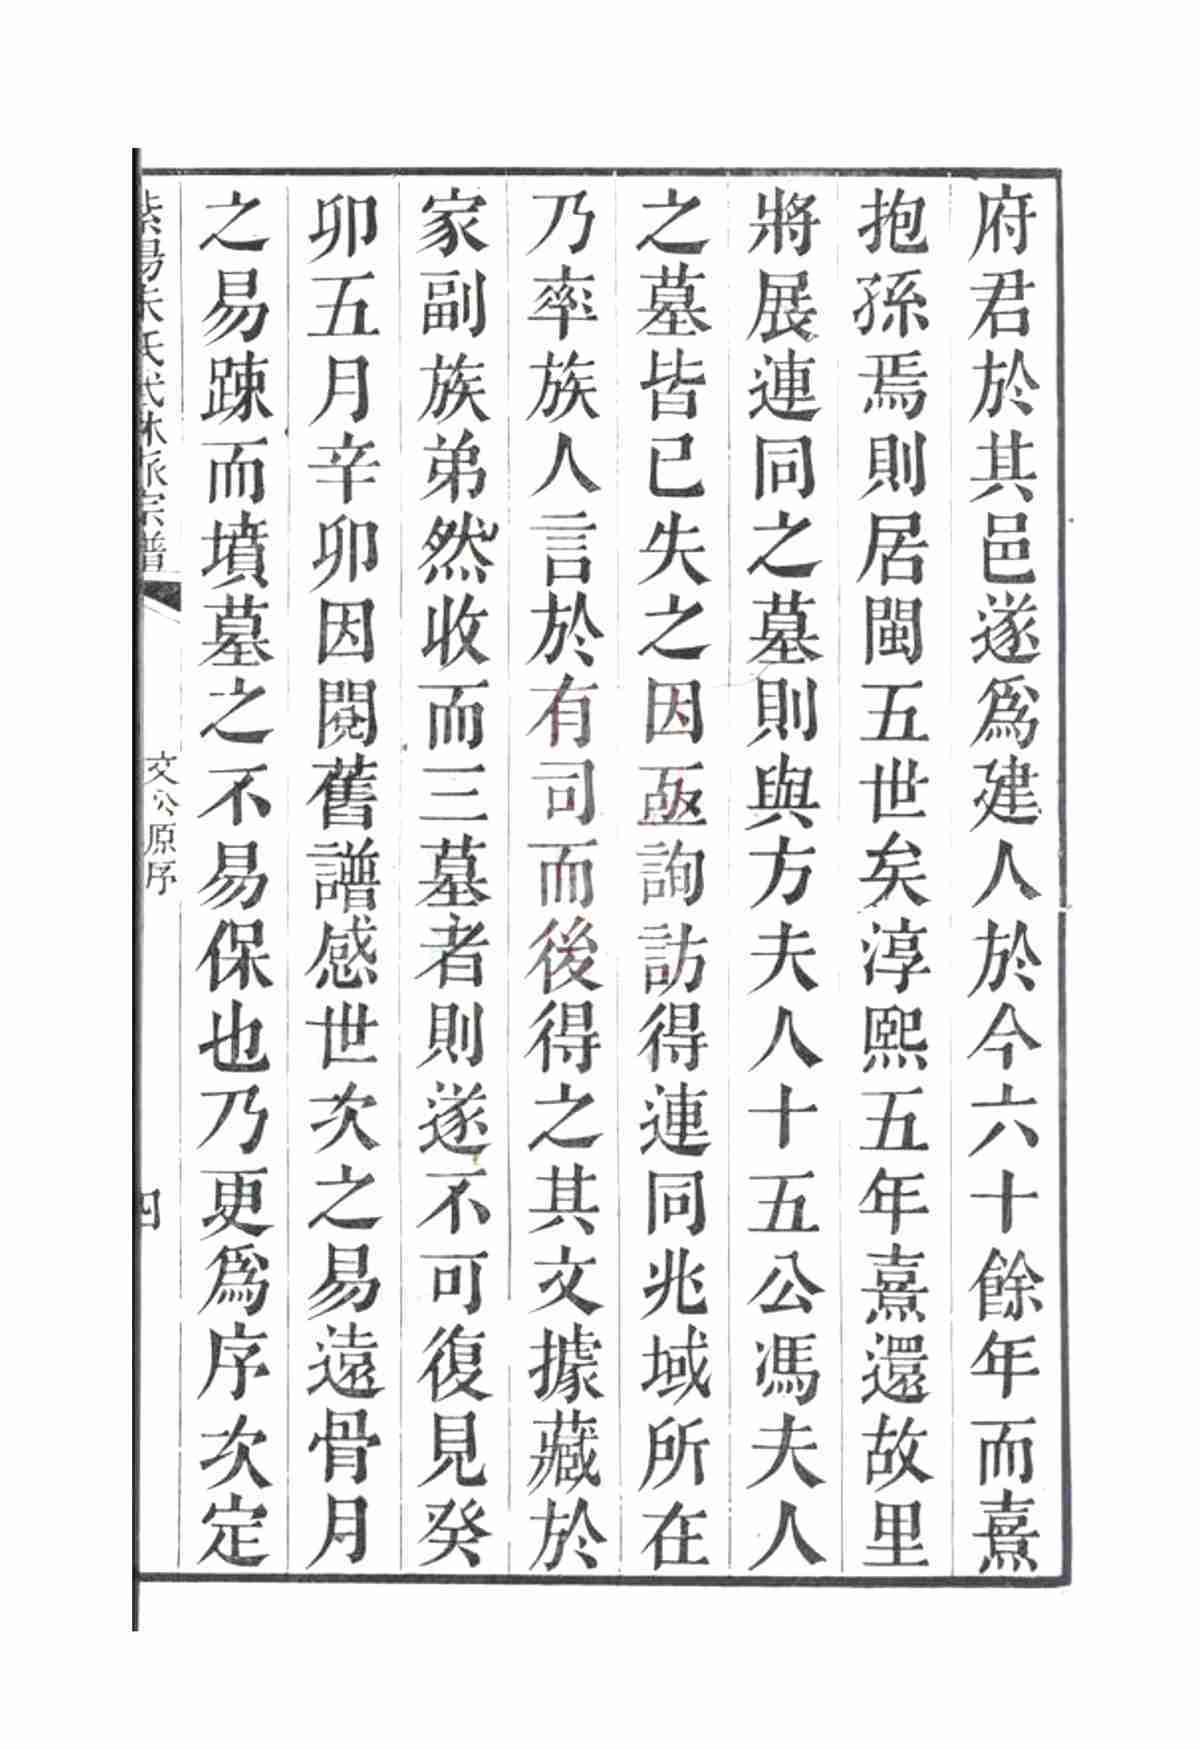 府君於其邑遂爲建人於今六十餘年而熹
抱孫焉則居閩五世矣淳熙五年熹還故里
將展連同之墓則與方夫人十五公馮夫人
之墓皆已失之因亟詢訪得連同兆域所在
乃率族人言於有司而後得之其文據藏於
家副族弟然收而三墓者則遂不可復見癸
卯五月辛卯因閱舊譜感世次之易遠骨月
之易踈而墳墓之不易保也乃更爲序次定
紫陽朱氏武林派宗譜 文公原序 四